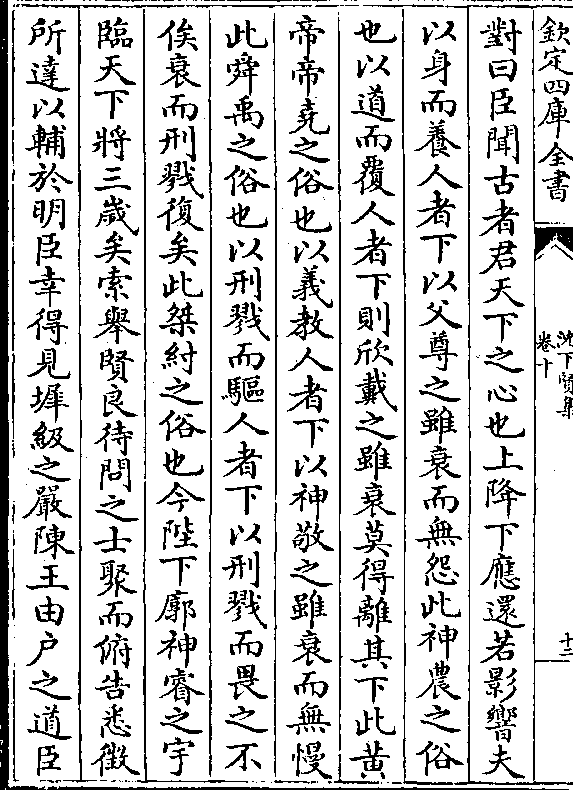 欽定四庫全書
沈下賢集
卷十
十三
對曰臣聞古者君天下之心也上降下應還若影響夫
以身而養人者下以父尊之雖衰而無怨此神農之俗
也以道而覆人者下則欣戴之雖衰莫得離其下此黄
帝帝堯之俗也以義教人者下以神敬之雖衰而無慢
此舜禹之俗也以刑戮而驅人者下以刑戮而畏之不
俟衰而刑戮復矣此桀紂之俗也今陛下廓神睿之宇
臨天下將三歲矣索舉賢良待問之士聚而俯告悉徵
所達以輔於明臣幸得見墀級之嚴陳王由户之道臣